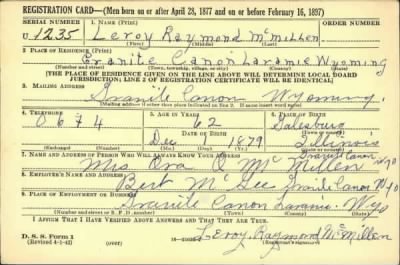 REGISTRATION CARD—(Men born on or after April 28, 1877 and on or before February 16, 1897)
SERIAL NUMBER 1. NAME (Print) ORDER NUMBER
U 1235 Leroy Raymond McMillen
(First) (Middle) (Last)
2. PLACE OF RESIDENCE (Print)
Granite Canon Laramie Wyoming
(Number and street) (Town, township, village, or city) (County) (State)
[THE PLACE OF RESIDENCE GIVEN ON THE LINE ABOVE WILL DETERMINE LOCAL BOARD
JURISDICTION; LINE 2 OF REGISTRATION CERTIFICATE WILL BE IDENTICAL]
3. MAILING ADDRESS
Granite Canon Wyoming.
[Mailing address if other than place indicated on line 2. If same insert word same]
4. TELEPHONE 5. AGE IN YEARS 6. PLACE OF BIRTH
0674 62 Salesburg
DATE OF BIRTH (Town or county)
Dec 1879 Illinois
(Exchange) (Number) (Mo.) (Day) (Yr.) (State or country)
7. NAME AND ADDRESS OF PERSON WHO WILL ALWAYS KNOW YOUR ADDRESS Granite Canon
Mrs Ora O McMillen Wyo
8. EMPLOYER'S NAME AND ADDRESS
Bert McGee Granite Canon Wyo
9. PLACE OF EMPLOYMENT OR BUSINESS
Granite Canon Laramie Wyo
(Number and street or R. F. D. number) (Town) (County) (State)
I AFFIRM THAT I HAVE VERIFIED ABOVE ANSWERS AND THAT THEY ARE TRUE.
D. S. S. Form 1
(Revised 4-1-42) (over) Leroy Raymond McMillen